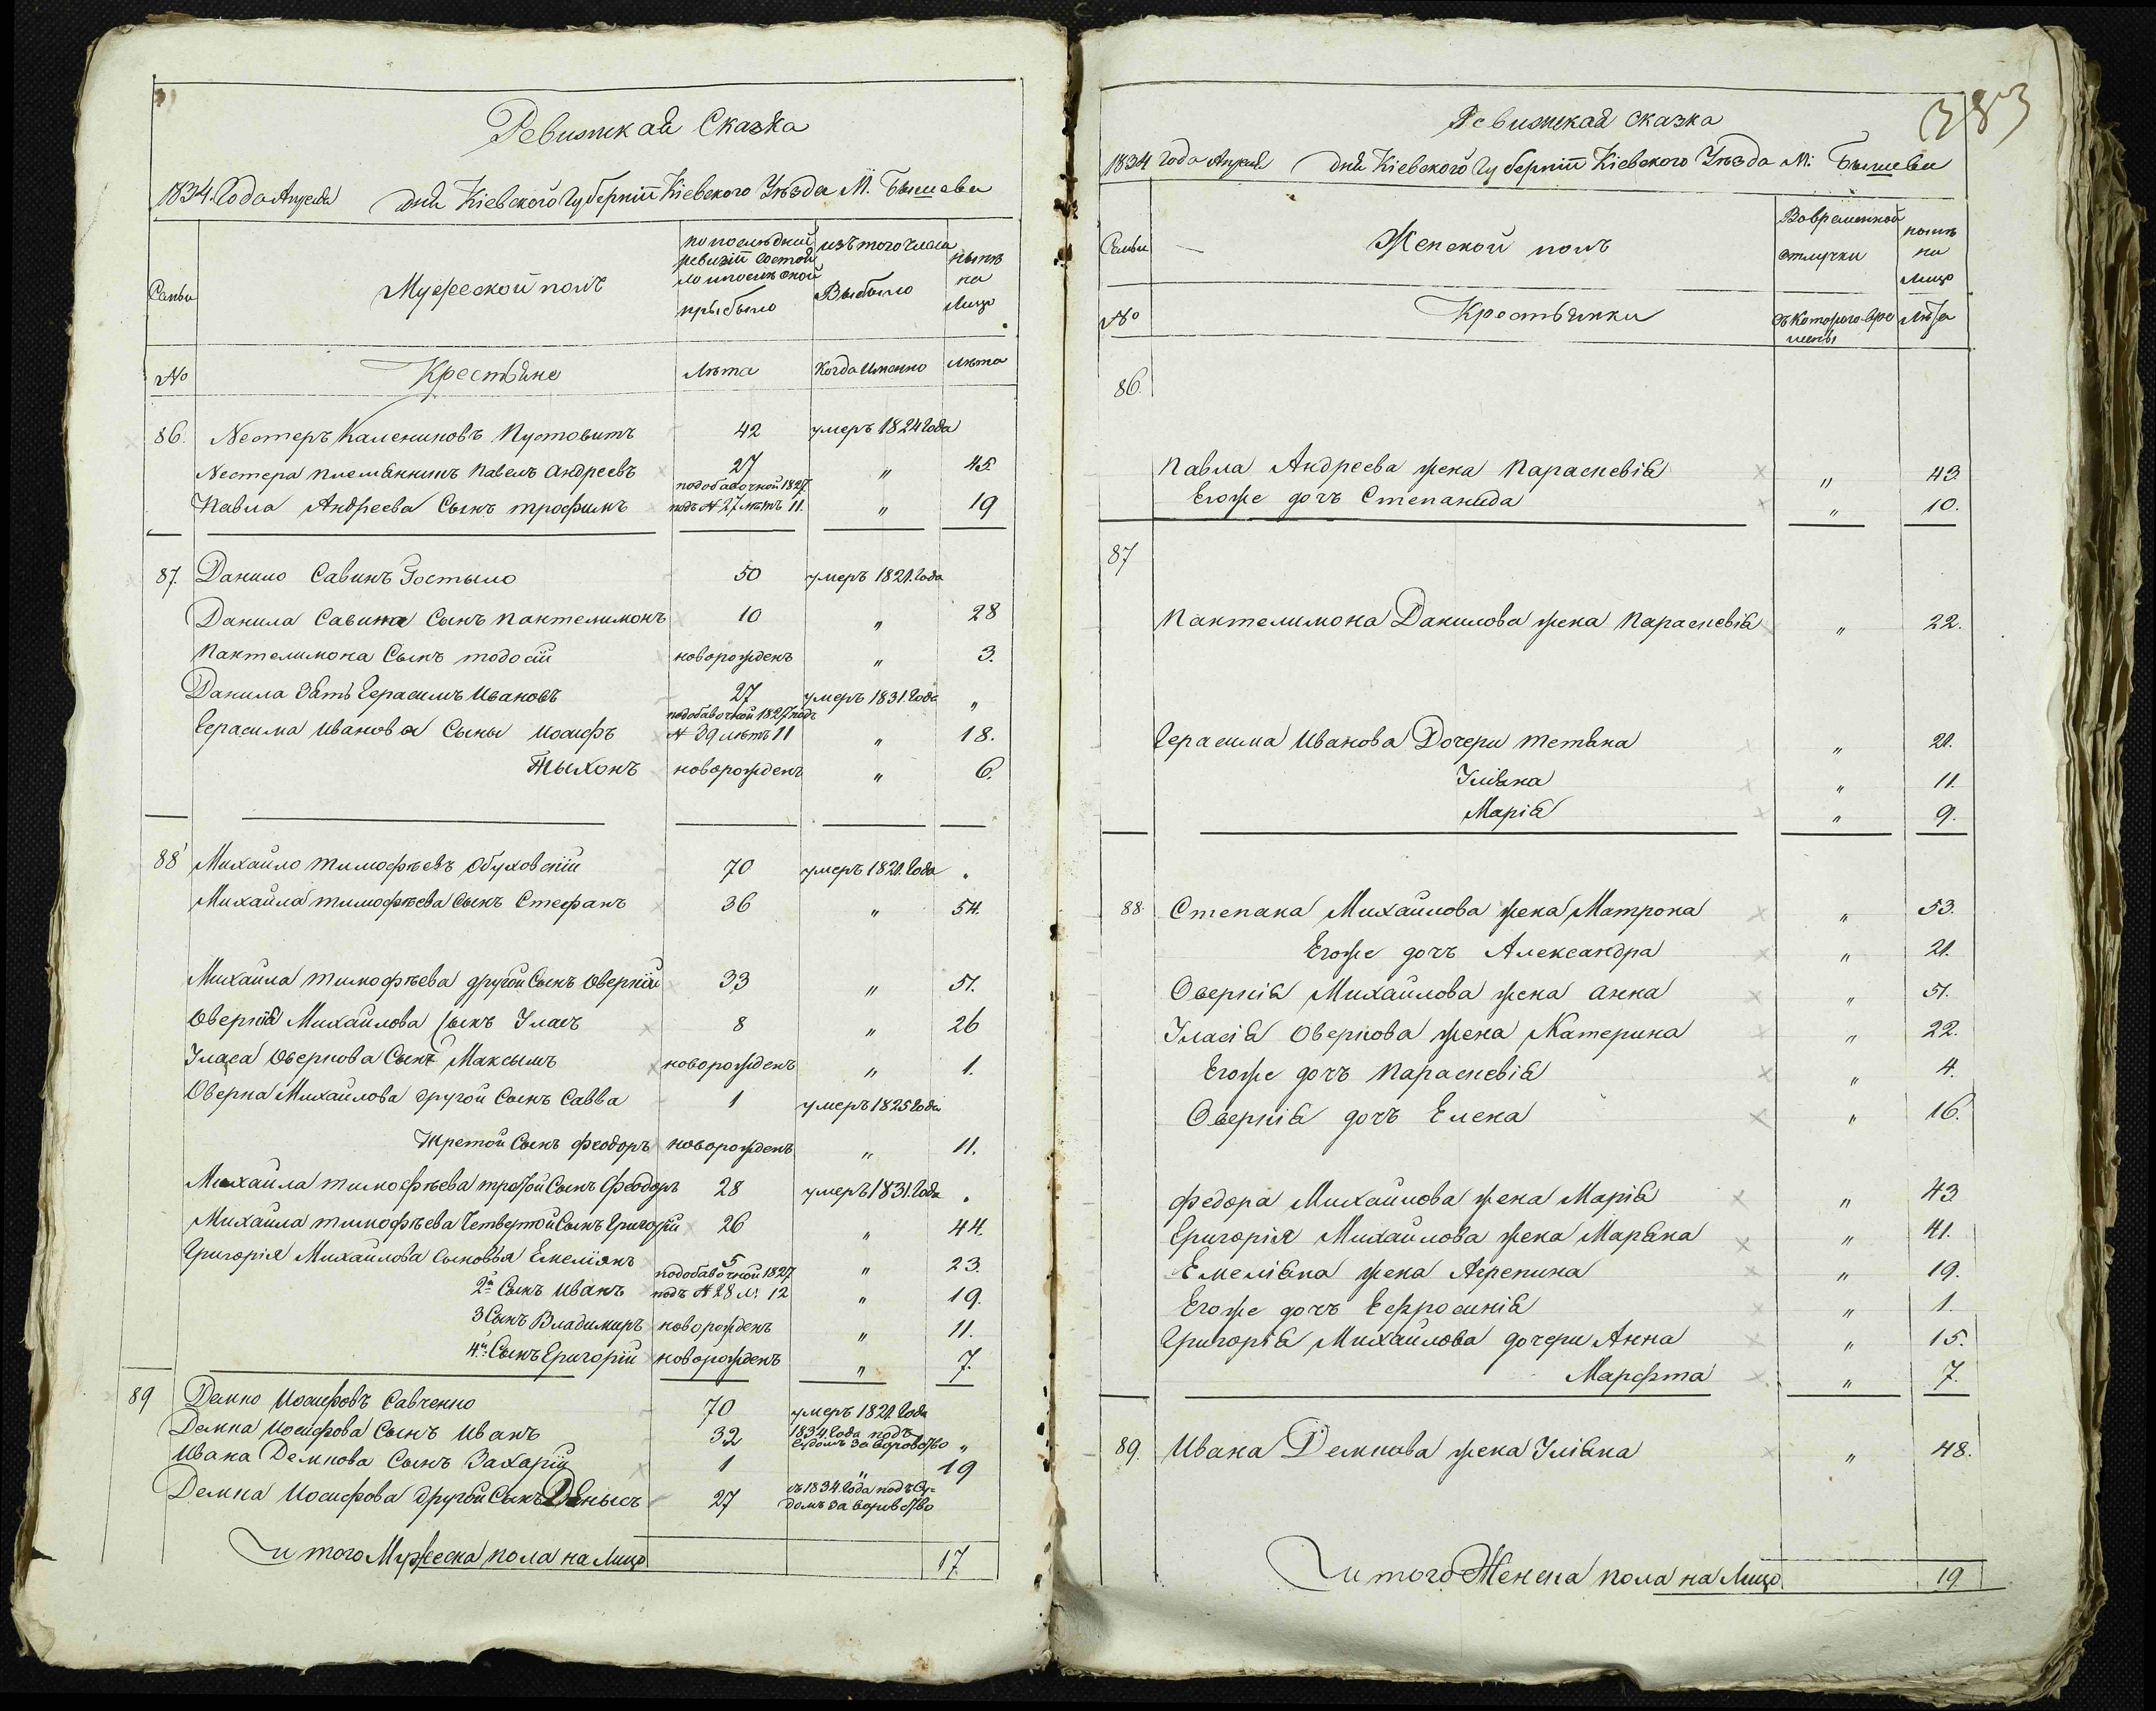 Ревижская Сказка
1834. Года Апреля дня Кіевской Губерніи Кіевского Уѣзда М. Бышева
Семьи
Мужеской полъ
по последней ревизіи состояло и после оной прыбыло
изъ того числа Выбыло
ныне на Лицо
№ Крестьяне Лѣта Когда Именно Лѣта
86. Нестеръ Калениковъ Пустовитъ 42 умеръ 1824 Года
Нестера племянникъ Павелъ Андреевъ 27 " 45
Павла Андреева Сынъ трофимъ по добавочной 1827 подъ № 27 лѣтъ 11. " 19
87. Данило Савинъ Зостыло 50 умеръ 1821. Года
Данила Савина Сынъ пантелимонъ 10 " 28
пантелимона Сынъ тодосій новорожденъ " 3.
Данила Зять Герасимъ Ивановъ 27 умеръ 1831. Года "
Герасима Иванова Сыны Иосифъ по добавочной 1827 подъ № 39 лѣтъ 11 " 18.
Тыхонъ новорожденъ " 6.
88 Михайло тимофѣевъ Обуховскій 70 умеръ 1821. Года
Михайла тимофѣева Сынъ Стефанъ 36 " 54.
Михаила тимофѣева другой Сынъ Оверкій 33 " 51.
Оверкія Михайлова Сынъ Уласъ 8 " 26
Уласа Оверкова Сынъ Максымъ новорожденъ " 1.
Оверка Михайлова другой Сынъ Савва 1 умеръ 1825 Года
Третой Сынъ феодоръ новорожденъ " 11.
Михаила тимофѣева третой Сынъ Феодоръ 28 умеръ 1831. Года
Михаила тимофѣева Четвертой Сынъ Григорій 26 " 44.
Григорія Михайлова Сыновья Емеліянъ 5 " 23.
2й Сынъ Иванъ по добавочной 1827 подъ № 28 л. 12 " 19.
3 Сынъ Владимиръ новорожденъ " 11.
4й Сынъ Григорій новорожденъ " 7.
89 Демко Иосифовъ Савченко 70 умеръ 1821. Года
Демка Иосифова Сынъ Иванъ 32 1834 Года подъ Судомъ за воровство "
Ивана Демкова Сынъ Захарій 1 " 19
Демка Иосифова другой Сынъ Денысъ 27 съ 1834. Года подъ Судомъ за воровство
итого Мужеска пола на Лицо 17.
383
Ревижская сказка
1834 Года Апреля дня Кіевской Губерніи Кіевского Уѣзда М: Бышева
Семьи
Женской полъ
Во временной отлучки
ныне на лицо
№ Крестьянки съ Которого времены Лѣта
86.
Павла Андреева жена Параскевія " 43.
Егоже дочъ Степанида " 10.
87
Пантелимона Данилова жена Параскевія " 22.
Герасима Иванова Дочери Тетяна " 21.
Уліяна " 11.
Марія " 9.
88. Степана Михайлова жена Матрона " 53.
Егоже дочъ Александра " 21.
Оверкія Михайлова жена Анна " 51.
Уласія Оверкова жена Катерина " 22.
Егоже дочъ Параскевія " 4.
Оверкія дочъ Елена " 16.
Федора Михайлова жена Марія " 43
Григорія Михайлова жена Маряна " 41.
Емеліяна жена Агрепина " 19.
Егоже дочъ Ефросинія " 1.
Григорія Михайлова дочери Анна " 15.
Марфта " 7.
89. Ивана Демкова жена Уліяна " 48.
итого Женска пола на Лицо 19